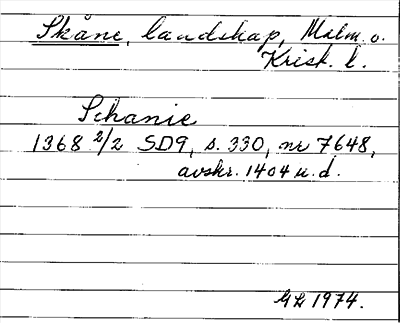 Skåne, landskap, Malm. o.
Krist. l.
Schanie
1368 2/2 SD9, s. 330, nr 7648,
avskr. 1404 u.d.
GL 1974.